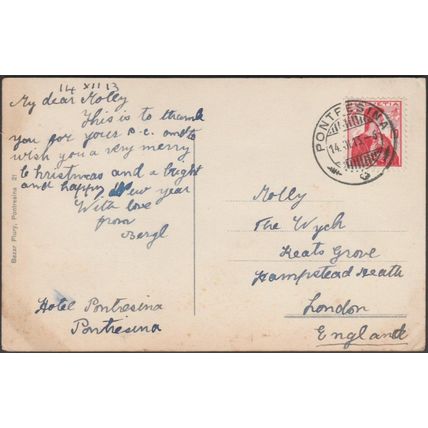 14 XII 13
My dear Molly
This is to thank
you for yours p.c. and to
wish you a very merry
Christmas and a bright
and happy New year
With love
from
Beryl
Hotel Pontresina
Pontresina
Bazar Flury, Pontresina 21
PONTRESINA
Molly
The Wych
Keats Grove
Hampstead Heath
London
England